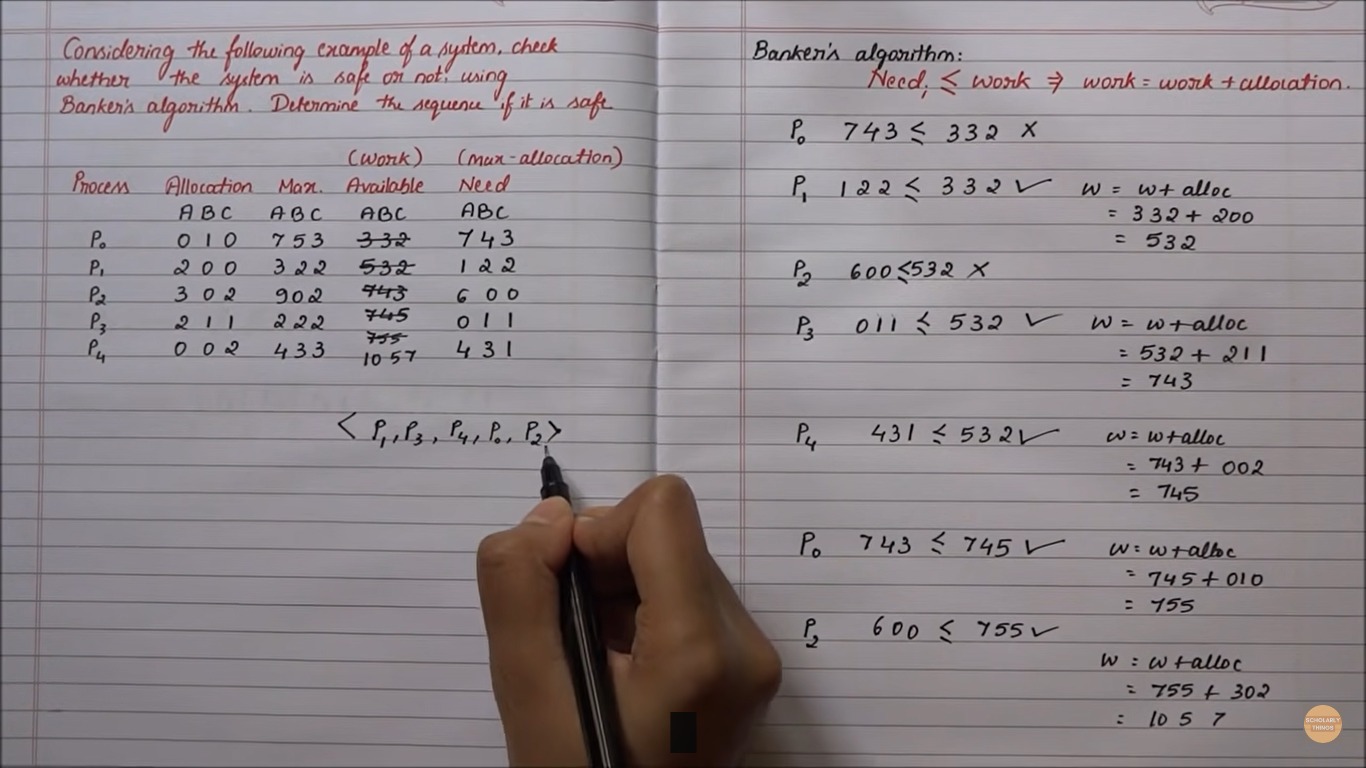 Considering the following example of a system, check
whether the system is safe or not using
Banker's algorithm. Determine the sequence if it is safe
(work) (max-allocation)
Process Allocation Max. Available Need
A B C A B C A B C A B C
P0 0 1 0 7 5 3 3 3 2 7 4 3
P1 2 0 0 3 2 2 5 3 2 1 2 2
P2 3 0 2 9 0 2 7 4 3 6 0 0
P3 2 1 1 2 2 2 7 4 5 0 1 1
7 5 5
P4 0 0 2 4 3 3 10 5 7 4 3 1
< P1, P3, P4, P0, P2 >
Banker's algorithm:
Needi ≤ work ⇒ work = work + allocation.
P0 7 4 3 ≤ 3 3 2 ✗
P1 1 2 2 ≤ 3 3 2 ✓ w = w + alloc
= 3 3 2 + 2 0 0
= 5 3 2
P2 6 0 0 ≤ 5 3 2 ✗
P3 0 1 1 ≤ 5 3 2 ✓ w = w + alloc
= 5 3 2 + 2 1 1
= 7 4 3
P4 4 3 1 ≤ 5 3 2 ✓ w = w + alloc
= 7 4 3 + 0 0 2
= 7 4 5
P0 7 4 3 ≤ 7 4 5 ✓ w = w + alloc
= 7 4 5 + 0 1 0
= 7 5 5
P2 6 0 0 ≤ 7 5 5 ✓
w = w + alloc
= 7 5 5 + 3 0 2
= 10 5 7
SCHOLARLY
THINGS